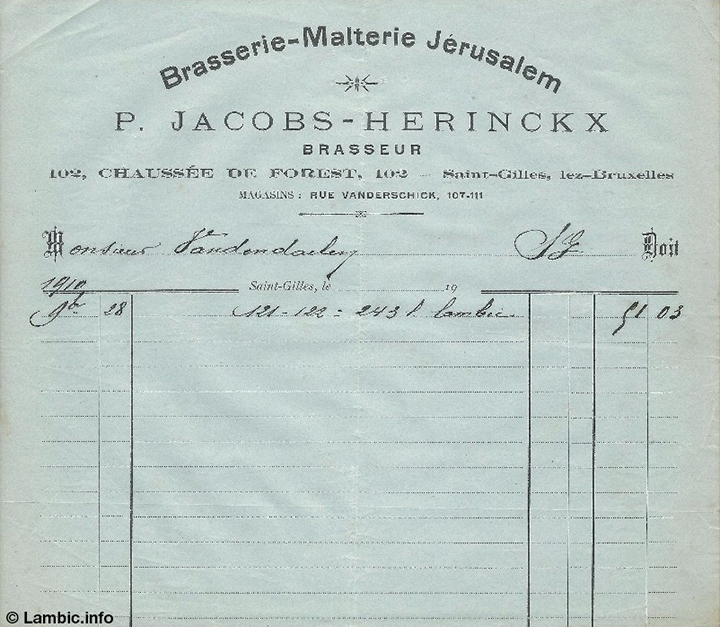 Brasserie-Malterie Jérusalem
P. JACOBS-HERINCKX
BRASSEUR
102, CHAUSSÉE DE FOREST, 102 — Saint-Gilles, lez-Bruxelles
MAGASINS : RUE VANDERSCHICK, 107-111
Monsieur SG Doit
1910 Saint-Gilles, le 19
9bre 28 121 - 122 = 243 l. lambic 51 03
© Lambic.info